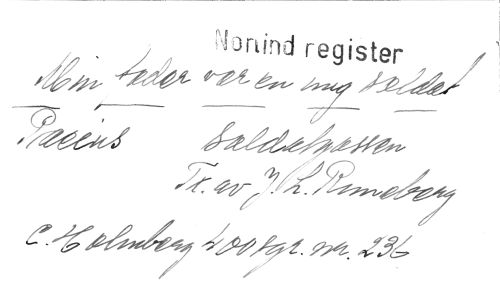 Nonind register
Min fader var en ung soldat
Pacius Soldatgossen
Tx. av J. L. Runeberg
C. Holmberg 400 sgr. nr. 236